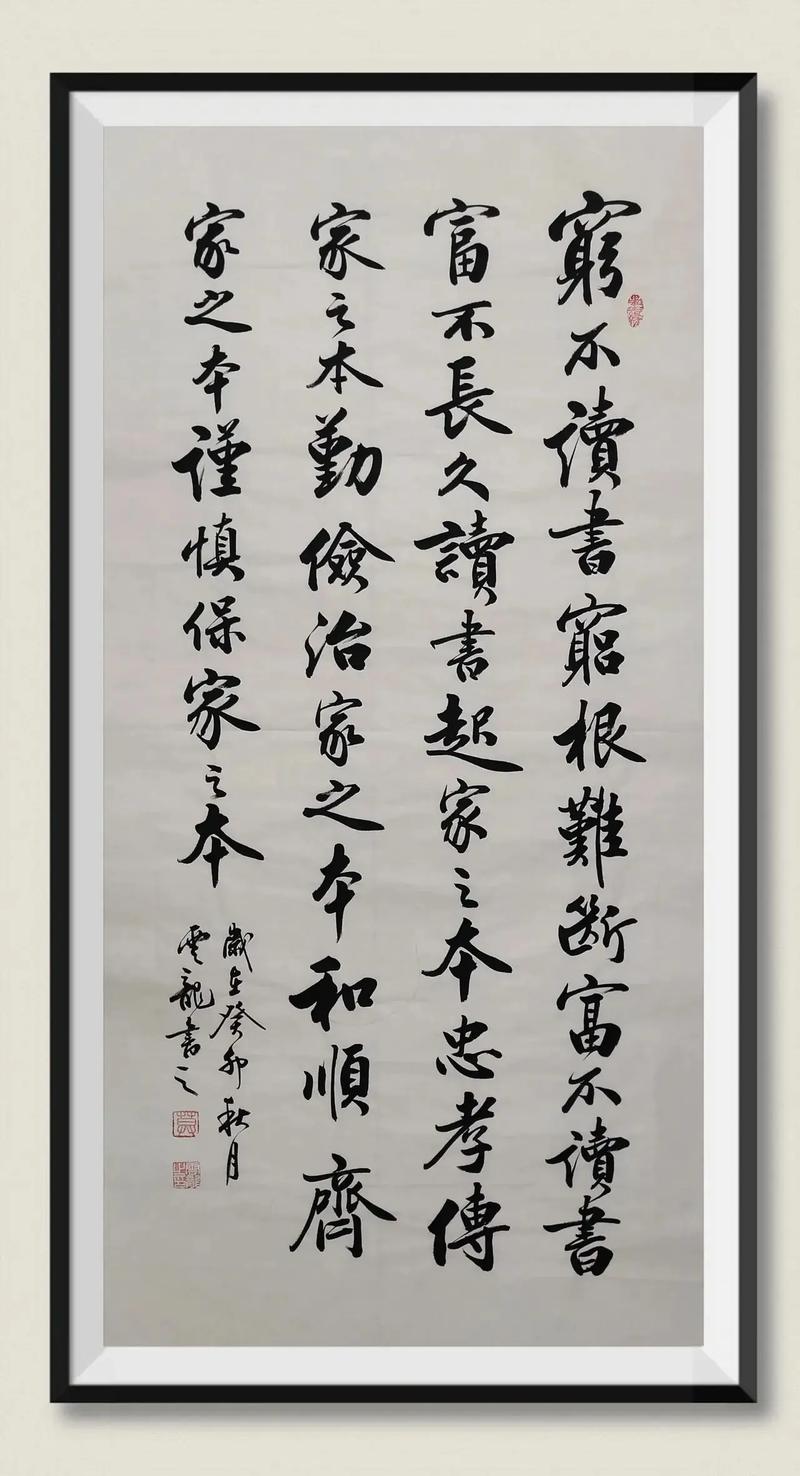 窮不讀書窮根難斷富不讀書
富不長久讀書起家之本忠孝傳
家之本勤儉治家之本和順齊
家之本謹慎保家之本
歲在癸卯秋月
雲龍書之